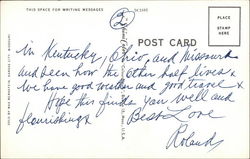 THIS SPACE FOR WRITING MESSAGES
2.
POST CARD
PLACE
STAMP
HERE
In Kentucky, Ohio, and Missouri
and seen how the other half lives &
We have good weather and good travel &
Hope this finds you well and
flourishing. Best Love
Roland